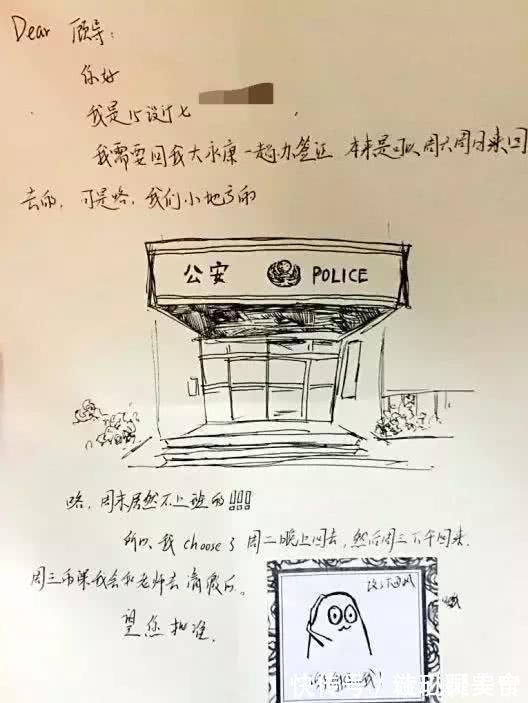 Dear 顾导:
你好
我是15设计七
我需要回我大永康一趟办签证 本来是可以周六周日来回
去的,可是咯,我们小地方的
公安 POLICE
咯,周末居然不上班的!!!
所以我choose了周二晚上回去,然后周三下午回来.
周三的课我会和老师去请假的。
望您批准.
快传号/